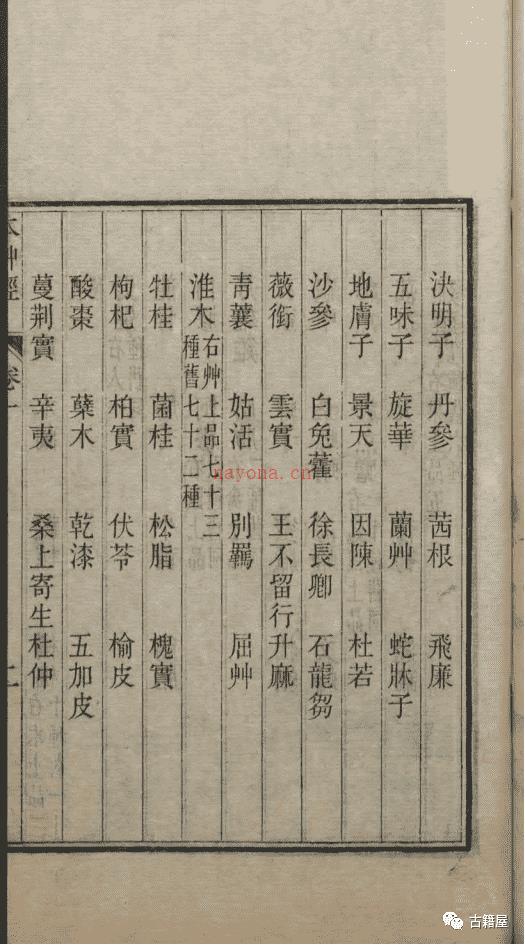 決明子 丹參 茜根 飛廉
五味子 旋華 蘭艸 蛇牀子
地膚子 景天 因陳 杜若
沙參 白兔藿 徐長卿 石龍芻
薇銜 雲實 王不留行 升麻
青蘘 姑活 別羈 屈艸
淮木 右艸上品七十三
種舊七十二種
牡桂 菌桂 松脂 槐實
枸杞 柏實 伏苓 榆皮
酸棗 蘗木 乾漆 五加皮
蔓荆實 辛夷 桑上寄生 杜仲
艸經 卷一 二
nayona.cn
古籍屋